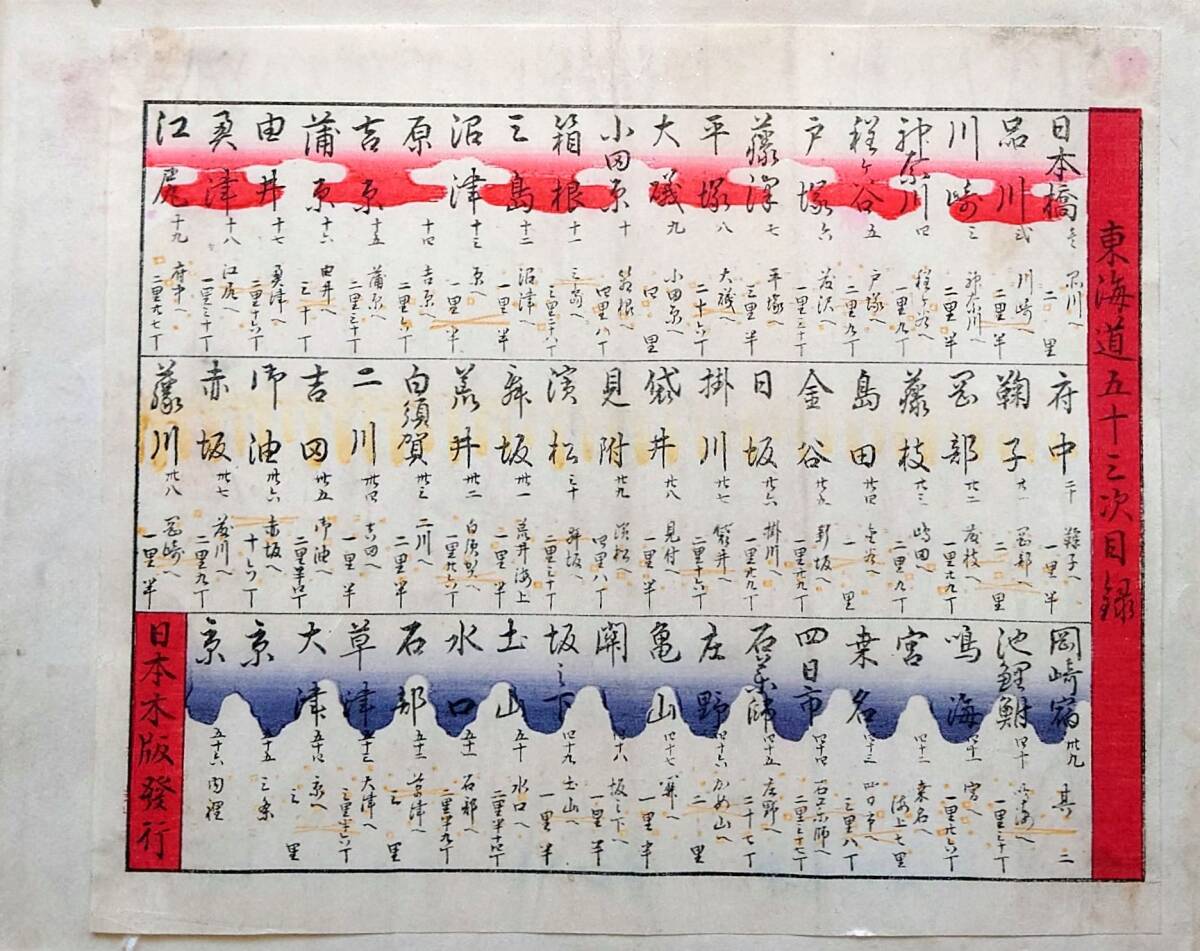 東海道五十三次目録
日本橋 壱 品川へ 二里
品川 弐 川崎へ 二里半
川崎 三 神奈川へ 二里半
神奈川 四 程ヶ谷へ 一里九丁
程ヶ谷 五 戸塚へ 二里九丁
戸塚 六 藤沢へ 一里三十丁
藤澤 七 平塚へ 三里半
平塚 八 大磯へ 二十六丁
大磯 九 小田原へ 四里
小田原 十 箱根へ 四里八丁
箱根 十一 三島へ 三里二十八丁
三島 十二 沼津へ 一里半
沼津 十三 原へ 一里半
原 十四 吉原へ 二里六丁
吉原 十五 蒲原へ 二里三十丁
蒲原 十六 由井へ 三十丁
由井 十七 奥津へ 二里十六丁
奥津 十八 江尻へ 一里三十丁
江尻 十九 府中へ 二里九七丁
府中 二十 鞠子へ 一里半
鞠子 廿一 岡部へ 二里
岡部 廿二 藤枝へ 一里廿九丁
藤枝 廿三 嶋田へ 二里九丁
島田 廿四 金谷へ 一里
金谷 廿五 新坂へ 一里廿九丁
日坂 廿六 掛川へ 一里廿九丁
掛川 廿七 袋井へ 二里十六丁
袋井 廿八 見付へ 一里半
見附 廿九 濱松へ 四里八丁
濱松 三十 舞坂へ 二里三十丁
舞坂 卅一 荒井海上 一里半
荒井 卅二 白須賀へ 一里廿六丁
白須賀 卅三 二川へ 二里半
二川 卅四 吉田へ 一里半
吉田 卅五 御油へ 二里半四丁
御油 卅六 赤坂へ 十六丁
赤坂 卅七 藤川へ 二里九丁
藤川 卅八 岡崎へ 一里半
岡崎宿 卅九 其二
池鯉鮒 四十 鳴海へ 一里三十丁
鳴海 四十一 宮へ 一里廿六丁
宮 四十二 桑名へ 海上七里
桑名 四十三 四日市へ 三里八丁
四日市 四十四 石薬師へ 二里三十七丁
石薬師 四十五 庄野へ 二十七丁
庄野 四十六 かめ山へ 二里
亀山 四十七 関へ 一里半
関 四十八 坂之下へ 一里半
坂之下 四十九 土山へ 一里半
土山 五十 水口へ 二里半十四丁
水口 五十一 石部へ 二里半九丁
石部 五十二 草津へ 三里
草津 五十三 大津へ 三里半六丁
大津 五十四 京へ 三里
京 五十五 三条
京 五十六 内裡
日本木版發行